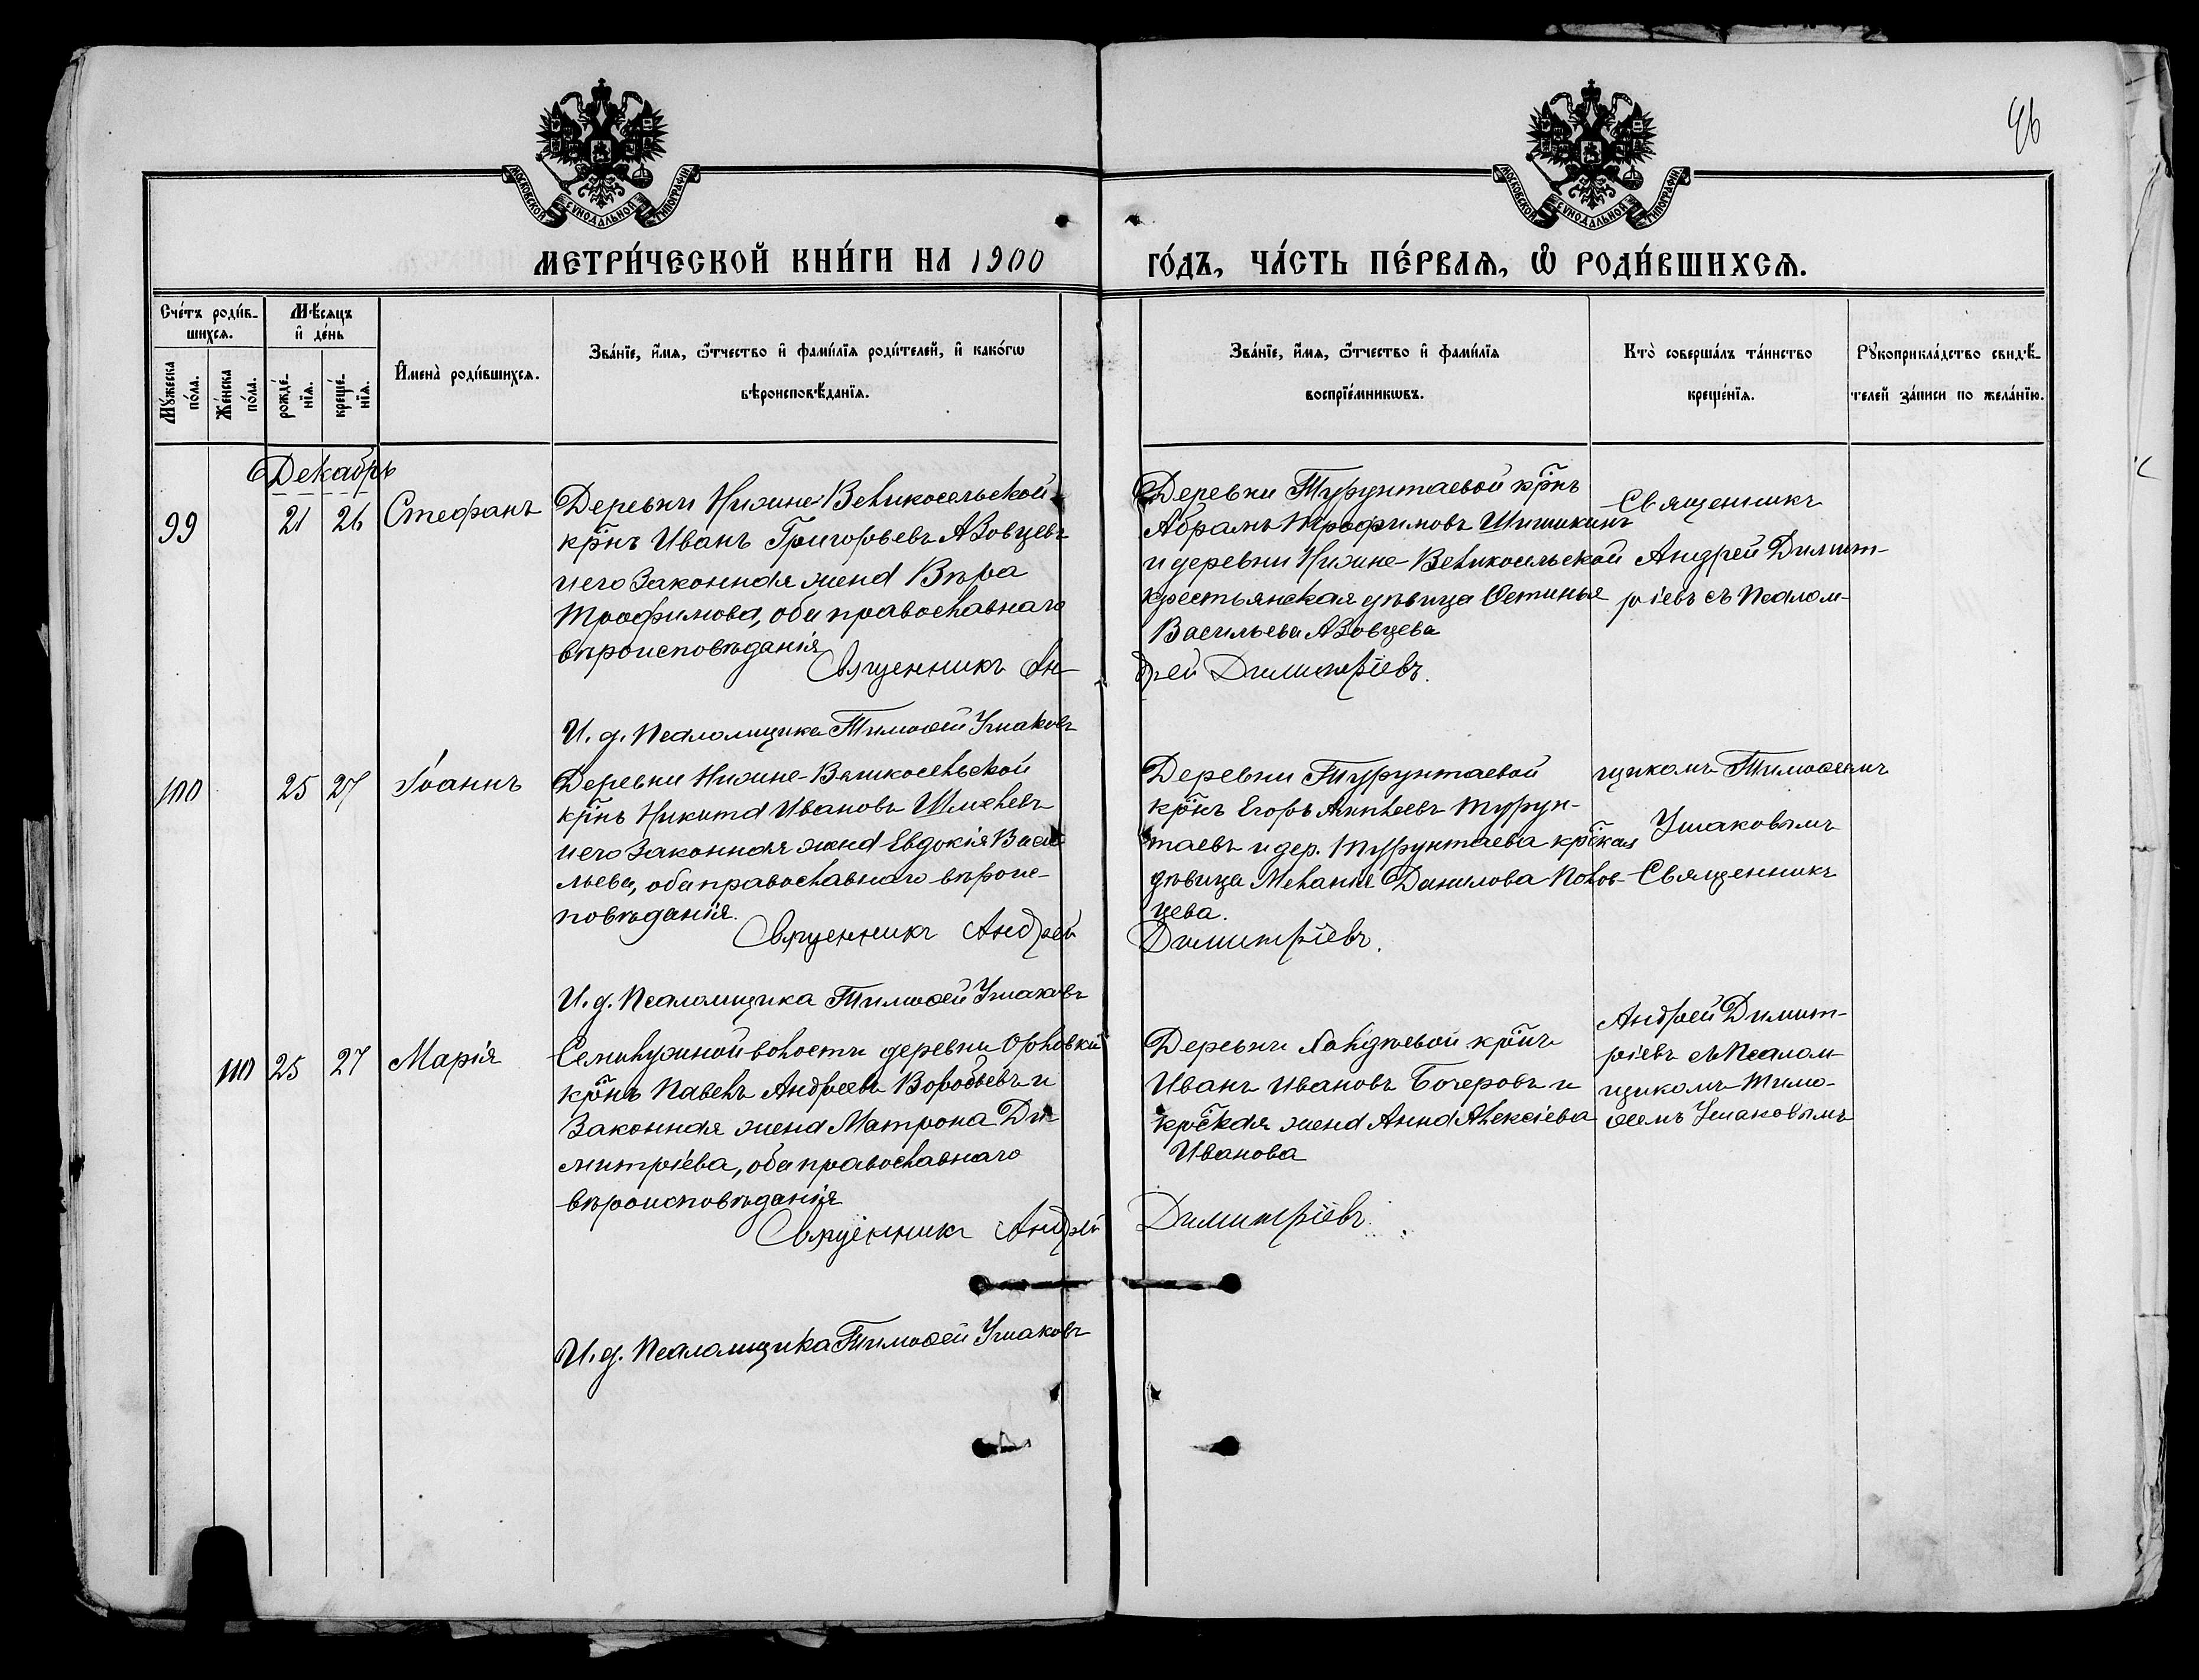 96
МОСКОВСКОЙ СУНОДАЛЬНОЙ ТИПОГРАФІИ
МОСКОВСКОЙ СУНОДАЛЬНОЙ ТИПОГРАФІИ
МЕТРИ́ЧЕСКОЙ КНИ́ГИ НА 1900
ГО́ДЪ, ЧА́СТЬ ПЕ́РВАѦ, Ѿ РОДИ́ВШИХСѦ.
Сче́тъ роди́в-
шихсѧ.
Мѣ́сѧцъ
и де́нь
Мꙋ́жеска по́ла.
Же́нска по́ла.
рожде́-
нїѧ.
креще́-
нїѧ.
И҆мена̀ роди́вшихсѧ.
Зва́нїе, и҆́мѧ, ѻ҆́тчество и҆ фами́лїѧ роди́телей, и҆ како́гѡ
вѣроисповѣ́данїѧ.
Зва́нїе, и҆́мѧ, ѻ҆́тчество и҆ фами́лїѧ
воспрїе́мникѡвъ.
Кто̀ соверша́лъ та́инство
креще́нїѧ.
Рꙋкоприкла́дство свидѣ́-
телей за́писи по жела́нїю.
Декабрь
99 21 26 Стефанъ
Деревни Нижне-Великосельской
крнъ Иванъ Григорьевъ Азовцевъ
и его законная жена Вѣра
Трофимова, оба православнаго
вѣроисповѣданія
Священникъ Ан-
И. д. Псаломщика Тимоѳей Ушаковъ
Деревни Турунтаевой крнъ
Абрамъ Трофимовъ Шишкинъ
и деревни Нижне-Великосельской
крестьянская дѣвица Устинья
Васильева Азовцева
дрей Димитріевъ.
Священникъ
Андрей Димит-
ріевъ съ Псалом-
100 25 27 Іоаннъ
Деревни Нижне-Великосельской
крнъ Никита Ивановъ Шмелевъ
и его законная жена Евдокія Васи-
льева, оба православнаго вѣроис-
повѣданія.
Священникъ Андрей
И. д. Псаломщика Тимоѳей Ушаковъ
Деревни Турунтаевой
крнъ Егоръ Турун-
таевъ и дер. Турунтаева крская
дѣвица Меланія Данилова
цева.
Димитріевъ.
щикомъ Тимоѳеемъ
Ушаковымъ
Священникъ
100 25 27 Марія
Семилужной волости деревни Орловки
крнъ Павелъ Андреевъ Воробьевъ и
законная жена Матрона Ди-
митріева, оба православнаго
вѣроисповѣданія
Священникъ Андрей
И. д. Псаломщика Тимоѳей Ушаковъ
Деревни крнъ
Иванъ Ивановъ Бочеровъ и
крская жена Анна Алексіева
Иванова
Димитріевъ.
Андрей Димит-
ріевъ съ Псалом-
щикомъ Тимо-
ѳеемъ Ушаковымъ